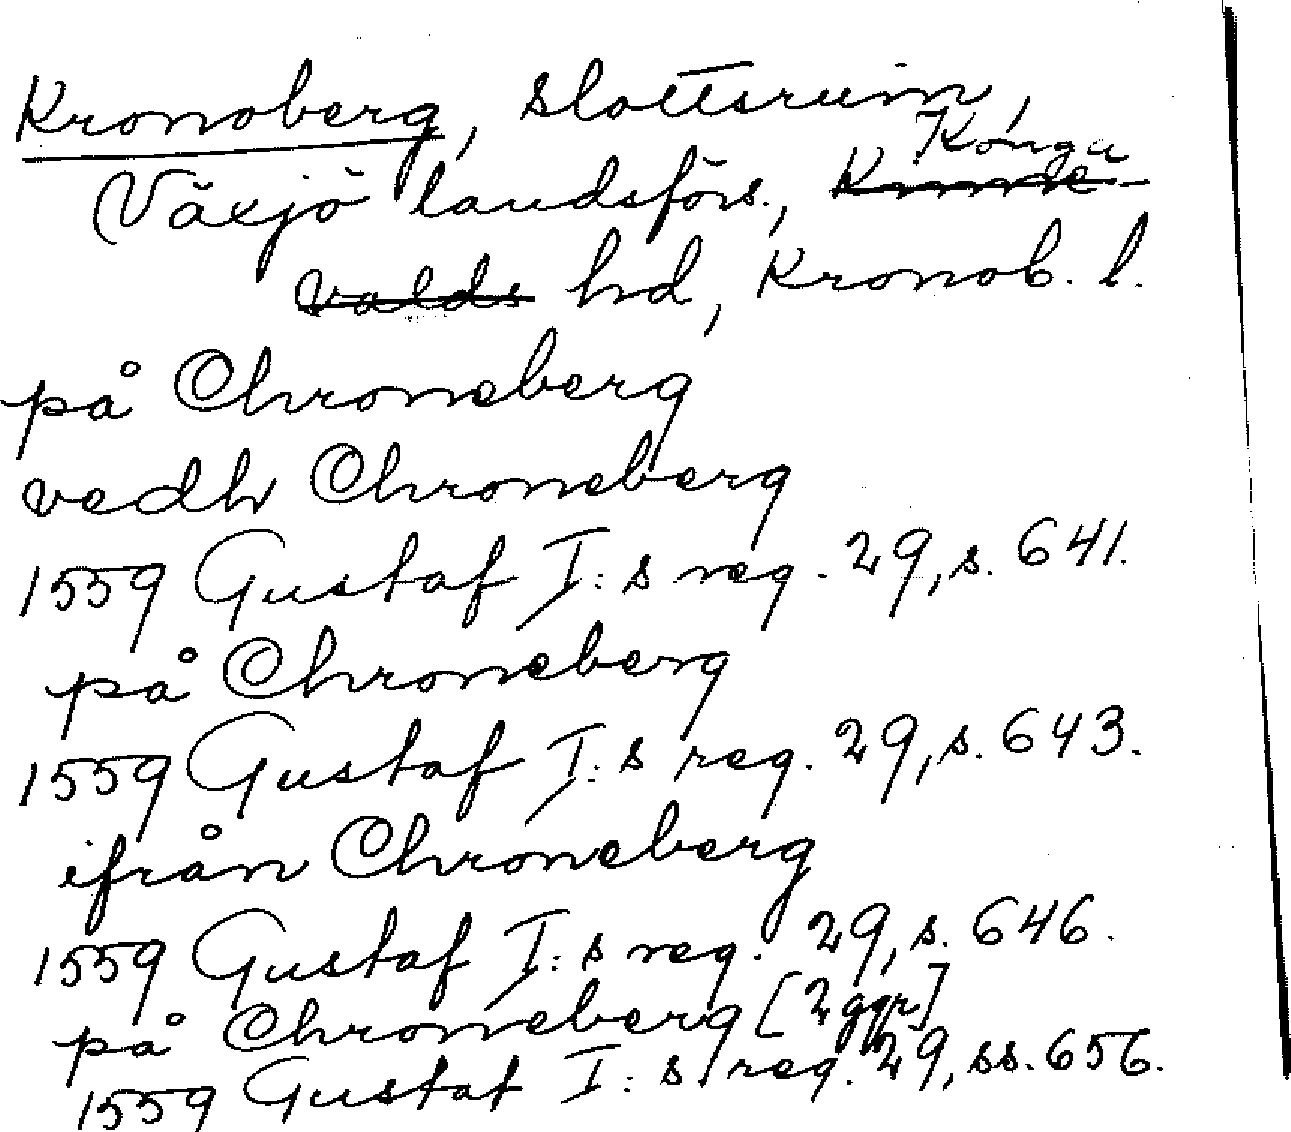 Kronoberg, slottsruin,
Växjö landsförs., Kinne- Konga
valds hd, Kronob. l.
på Chroneberg
vedh Chroneberg
1559 Gustaf I:s reg. 29, s. 641.
på Chroneberg
1559 Gustaf I:s reg. 29, s. 643.
ifrån Chroneberg
1559 Gustaf I:s reg. 29, s. 646.
på Chroneberg [2 ggr]
1559 Gustaf I:s reg. 29, ss. 656.